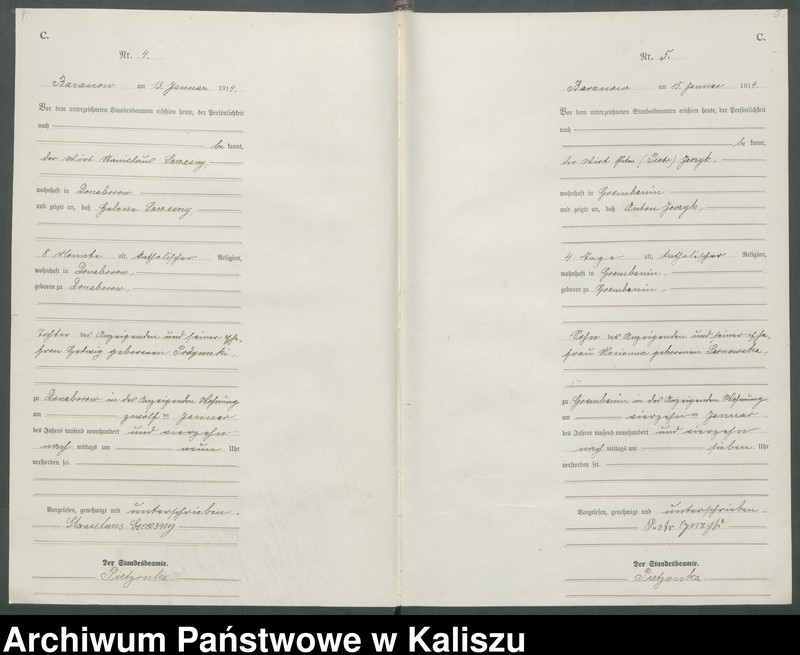 4.
C.
Nr. 4.
Baranow am 13. Januar 1914.
Vor dem unterzeichneten Standesbeamten erschien heute, der Persönlichkeit
nach
be kannt,
der Wirt Stanislaus Szczesny,
wohnhaft in Donaborow
und zeigte an, daß Helene Szczesny,
8 Monate alt, katholischer Religion,
wohnhaft in Donaborow,
geboren zu Donaborow,
Tochter des Anzeigenden und seiner Ehe-
frau Hedwig geborenen
zu Donaborow in des Anzeigenden Wohnung
am zwölften Januar
des Jahres tausend neunhundert und vierzehn
nach mittags um neun Uhr
verstorben sei.
Vorgelesen, genehmigt und unterschrieben.
Stanislaus Szczesny
Der Standesbeamte.
Pietzonka
5
C.
Nr. 5.
Baranow am 15. Januar 1914.
Vor dem unterzeichneten Standesbeamten erschien heute, der Persönlichkeit
nach
be kannt,
der Wirt Peter (Piotr) Jerzyk,
wohnhaft in Grembanin
und zeigte an, daß Anton Jerzyk,
4 Tage alt, katholischer Religion,
wohnhaft in Grembanin,
geboren zu Grembanin,
Sohn des Anzeigenden und seiner Ehe-
frau Marianna geborenen
zu Grembanin in des Anzeigenden Wohnung
am vierzehnten Januar
des Jahres tausend neunhundert und vierzehn
nach mittags um sieben Uhr
verstorben sei.
Vorgelesen, genehmigt und unterschrieben.
Piotr Jerzyk
Der Standesbeamte.
Pietzonka.
Archiwum Państwowe w Kaliszu